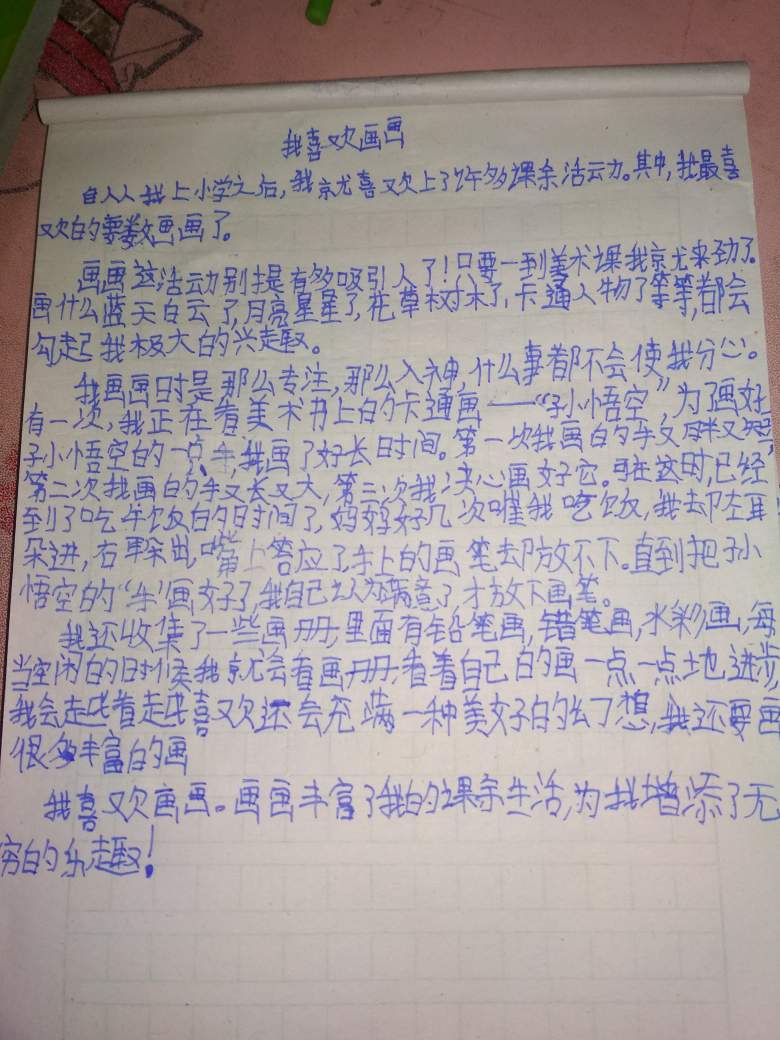 我喜欢画画
自从我上小学之后，我就喜欢上了许多课余活动。其中，我最喜
欢的要数画画了。
画画这活动别提有多吸引人了！只要一到美术课我就来劲了。
画什么蓝天白云了，月亮星星了，花草树木了，卡通人物了等等，都会
勾起我极大的兴趣。
我画画时是那么专注，那么入神，什么事都不会使我分心。
有一次，我正在看美术书上的卡通画——“孙小悟空”，为了画好
孙小悟空的一点手，我画了好长时间。第一次我画的手又胖又短，
第二次我画的手又长又大，第三次我决心画好它。可在这时，已经
到了吃午饭的时间了，妈妈好几次催我吃饭，我却左耳
朵进，右耳朵出，嘴上答应了，手上的画笔却放不下。直到把孙小
悟空的“手”画好了，我自己认为满意了才放下画笔。
我还收集了一些画册，里面有铅笔画，蜡笔画，水彩画，每
当空闲的时候我就会看画册，看着自己的画一点一点地进步，
我会越看越喜欢还会充满一种美好的幻想，我还要画
很多丰富的画
我喜欢画画。画画丰富了我的课余生活，为我增添了无
穷的乐趣！